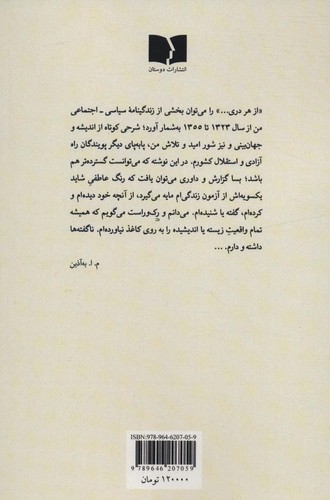 انتشارات دوستان
«از هر دری...» را می‌توان بخشی از زندگینامهٔ سیاسی - اجتماعی
من از سال ۱۳۲۳ تا ۱۳۵۵ به‌شمار آورد؛ شرحی کوتاه از اندیشه و
جهان‌بینی و نیز شور امید و تلاش من، پابه‌پای دیگر پویندگان راه
آزادی و استقلال کشورم. در این نوشته که می‌توانست گسترده‌تر هم
باشد؛ بسا گزارش و داوری می‌توان یافت که رنگ عاطفیِ شاید
یکسویه‌اش از آزمون زندگی‌ام مایه می‌گیرد، از آنچه خود دیده‌ام و
کرده‌ام، گفته یا شنیده‌ام. می‌دانم و رک‌وراست می‌گویم که همیشه
تمام واقعیتِ زیسته یا اندیشیده را به روی کاغذ نیاورده‌ام. ناگفته‌ها
داشته و دارم. ...
م. ا. به‌آذین
ISBN:978-964-6207-05-9
9 789646 207059
۱۲۰۰۰۰ تومان